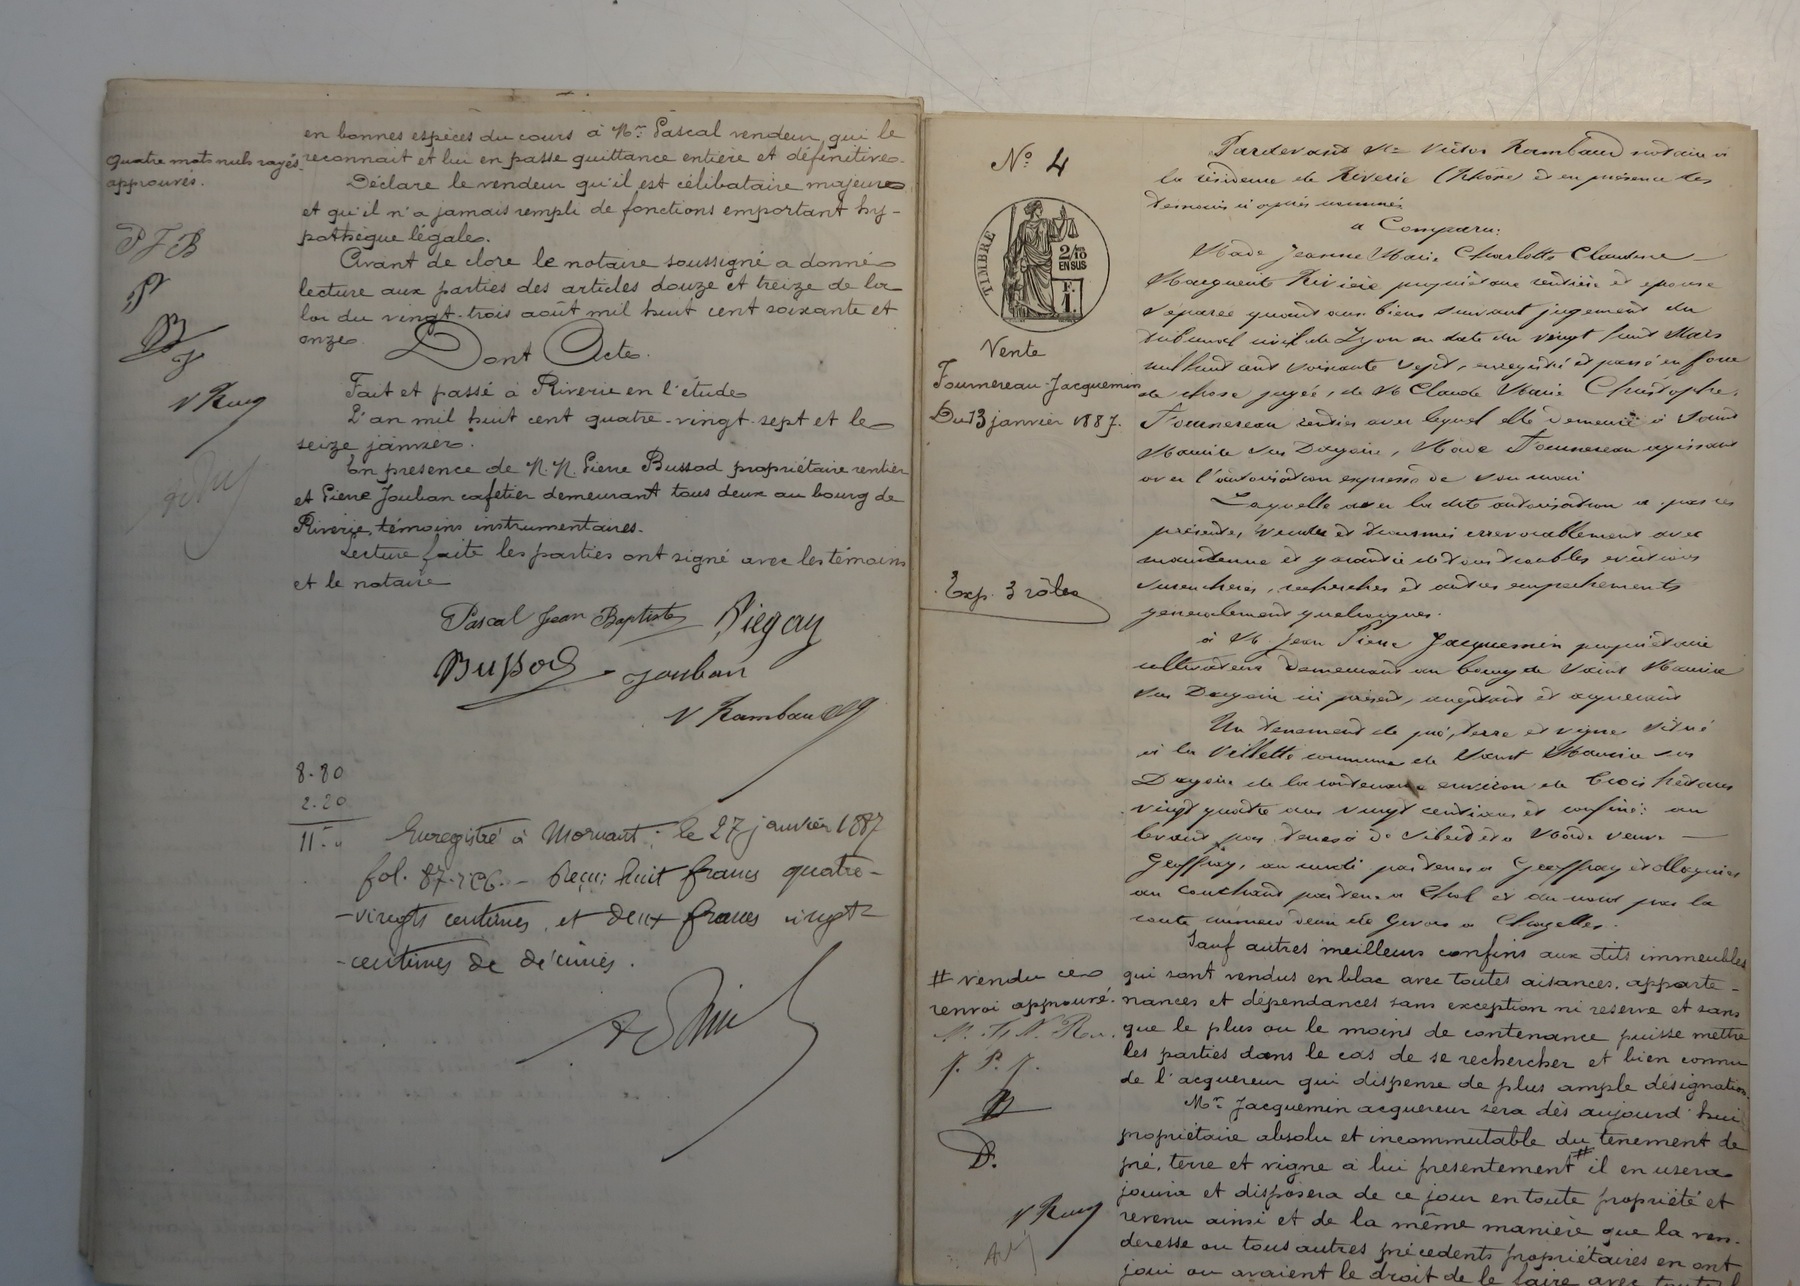 en bonnes espèces du cours à Mr. Pascal vendeur, qui le
Quatre mots nuls rayés
approuvés.
reconnait et lui en passe quittance entière et définitive.
Déclare le vendeur qu'il est célibataire majeur
et qu'il n'a jamais rempli de fonctions emportant hy-
pothèque légale.
Avant de clore le notaire soussigné a donné
lecture aux parties des articles douze et treize de la
loi du vingt-trois août mil huit cent soixante et
onze.
Dont Acte.
Fait et passé à Riverie en l'étude
L'an mil huit cent quatre-vingt-sept et le
seize janvier.
En présence de M.M. Pierre Bussod propriétaire rentier
et Pierre Jouban cafetier demeurant tous deux au bourg de
Riverie, témoins instrumentaires.
Lecture faite les parties ont signé avec les témoins
et le notaire
P J B
J
V Ramb
Pascal Jean Baptiste Piegay
Bussod Jouban
V Rambaud
8.80
2.20
11.
Enregistré à Mornant, le 27 janvier 1887
fol. 87. - Reçu: huit francs quatre-
-vingts centimes, et deux francs vingt
-centimes de décimes.
No 4
TIMBRE
2/10
EN SUS
F.
1.
Vente
Fournereau-Jacquemin
Du 13 janvier 1887.
Exp. 3 rôles
Pardevant Me Victor Rambaud notaire à
la résidence de Riverie (Rhône) et en présence des
témoins ci après nommés
a Comparu:
Made Jeanne Marie Charlotte Claudine
Marguerite Rivière propriétaire rentière et épouse
séparée quand aux biens suivant jugement du
tribunal civil de Lyon en date du vingt huit Mars
mil huit cent soixante sept, enregistré et passé en force
de chose jugée, de M Claude Marie Christophe
Fournereau rentier avec lequel elle demeure à Saint
Maurice sur Dargoire, Made Fournereau agissant
avec l'autorisation expresse de son mari
Laquelle avec la dite autorisation a par ces
présentes, vendu et transmis irrévocablement avec
maintenue et garantie de tous troubles évictions
surenchères, recherches et autres empêchements
généralement quelconques.
à M. Jean Pierre Jacquemin propriétaire
cultivateur demeurant au bourg de Saint Maurice
sur Dargoire ici présent, acceptant et acquérant
Un tènement de pré, terre et vigne situé
à la Villette commune de Saint Maurice sur
Dargoire de la contenance environ de trois hectares
vingt quatre ares vingt centiares et confiné: au
levant par terres à de et à Made veuve
Geoffray, au midi par terres à Geoffray et
au couchant par terre à Chol et au nord par la
route numéro deux de Givors à Chazelles.
Sauf autres meilleurs confins aux dits immeubles
qui sont vendus en bloc avec toutes aisances, apparte-
nances et dépendances sans exception ni réserve et sans
que le plus ou le moins de contenance puisse mettre
les parties dans le cas de se rechercher et bien connu
de l'acquéreur qui dispense de plus ample désignation
Mr. Jacquemin acquéreur sera dès aujourd'hui
propriétaire absolu et incommutable du tènement de
pré, terre et vigne à lui présentement # il en usera
jouira et disposera de ce jour en toute propriété et
revenu ainsi et de la même manière que la ven-
deresse ou tous autres précédents propriétaires en ont
joui ou avaient le droit de le faire avec
# vendu ce
renvoi approuvé.
J. P. J.
V Ramb